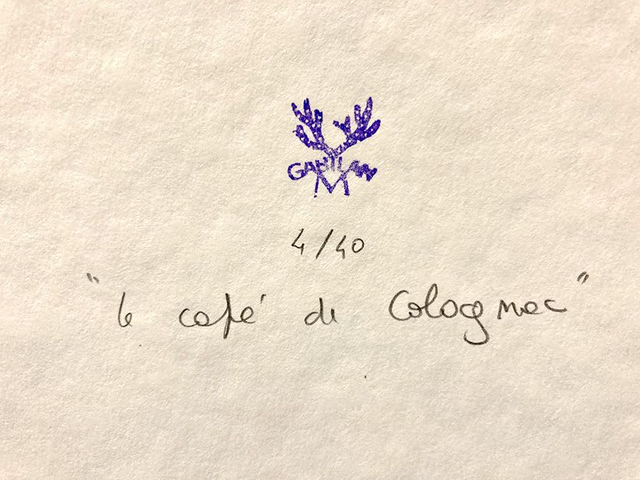 GABILAN
M
4/40
"le café de Colognac"